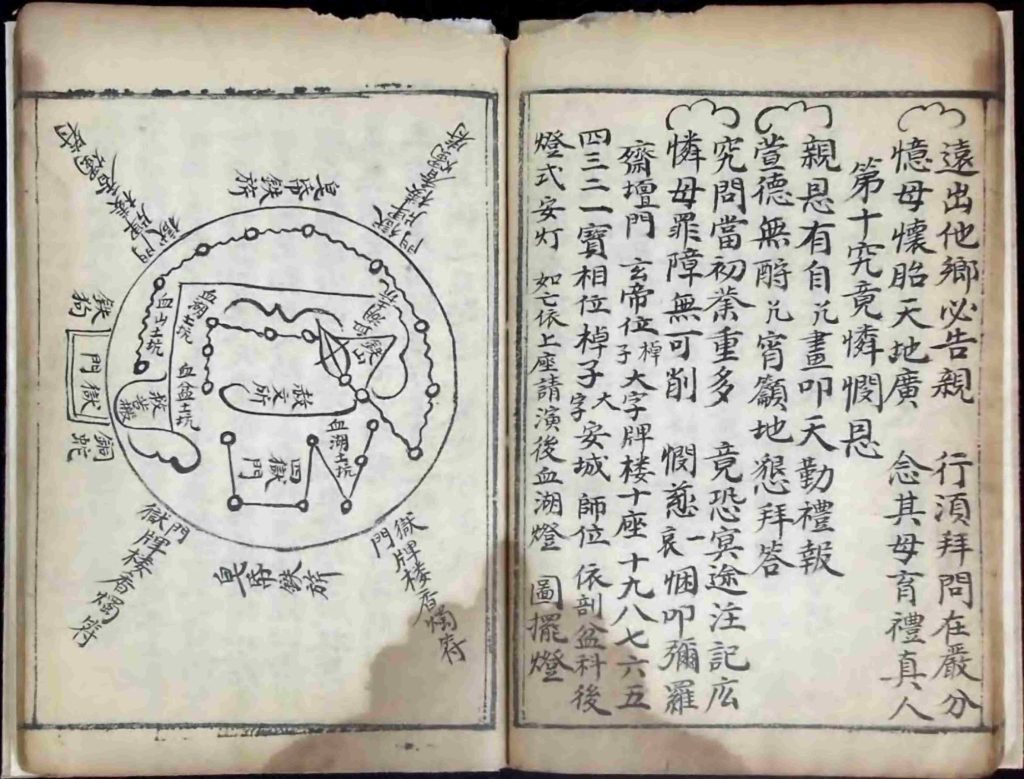 遠出他鄉必告親　行須拜問在嚴分
憶母懷胎天地廣　念其母育禮真人
第十究竟憐憫恩
親恩有自兊畫叩天勤禮報
萱德無酧兊宵籲地懇拜答
究問當初業重多　竟恐冥途注記広
憐母罪障無可削　憫慈哀一悃叩彌羅
齋壇門　玄帝位桌子大字牌楼十座十九八七六五
四三二一寶相位桌子大字安城師位依剖盆科後
燈式安灯　如亡依上座請演後血湖燈　圖擺燈
獄門牌楼香燭
皇帝
獄門牌楼香燭
鉄狗
門獄
銅蛇
血山土坑
血湖土坑
血盆土坑
赦文所
血湖土坑
四獄門
獄門牌楼香燭符
獄門牌楼香燭符